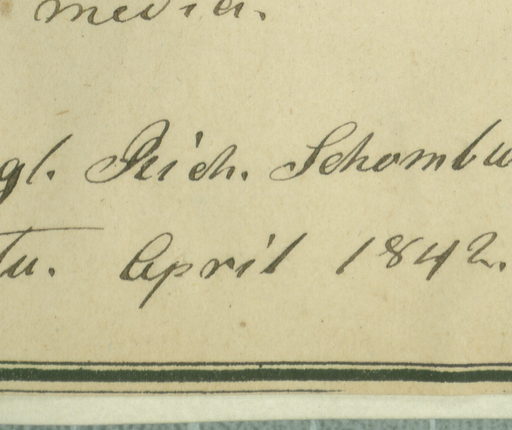 media.
gl. Rich. Schombu
Tu. April 1842.